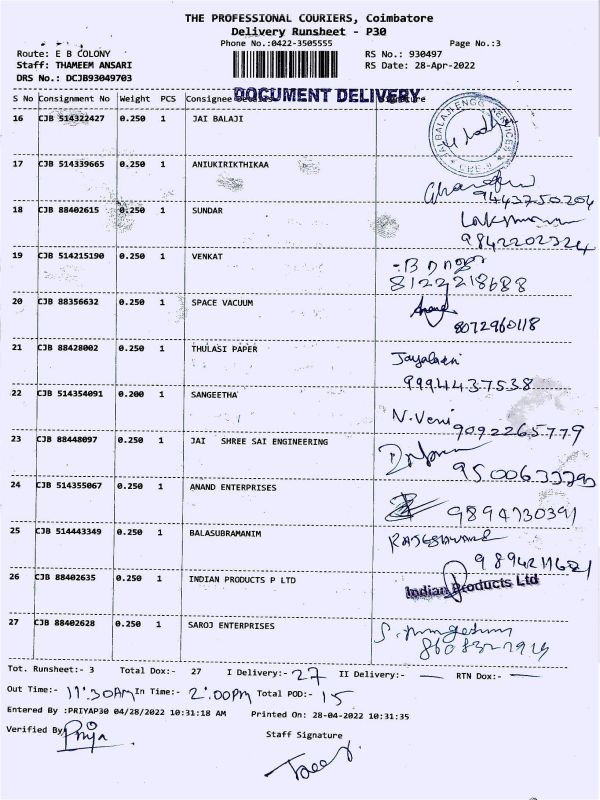 THE PROFESSIONAL COURIERS, Coimbatore
Delivery Runsheet - P30
Phone No.:0422-3505555 Page No.:3
Route: E B COLONY RS No.: 930497
Staff: THAMEEM ANSARI RS Date: 28-Apr-2022
DRS No.: DCJB93049703
DOCUMENT DELIVERY
S No Consignment No Weight PCS Consignee
16 CJB 514322427 0.250 1 JAI BALAJI
JAI BALAJI ENGG SERVICES
17 CJB 514339665 0.250 1 ANIUKIRIKTHIKAA
9443750204
18 CJB 88402615 0.250 1 SUNDAR
Lakshmanan
9842202324
19 CJB 514215190 0.250 1 VENKAT
8122218688
20 CJB 88356632 0.250 1 SPACE VACUUM
Anand
8072960118
21 CJB 88428002 0.250 1 THULASI PAPER
9994437538
22 CJB 514354091 0.200 1 SANGEETHA
N. Veni 9092265779
23 CJB 88448097 0.250 1 JAI SHREE SAI ENGINEERING
24 CJB 514355067 0.250 1 ANAND ENTERPRISES
9894730391
25 CJB 514443349 0.250 1 BALASUBRAMANIM
26 CJB 88402635 0.250 1 INDIAN PRODUCTS P LTD
Indian Products Ltd
27 CJB 88402628 0.250 1 SAROJ ENTERPRISES
Tot. Runsheet:- 3 Total Dox:- 27 I Delivery:- 27 II Delivery:- — RTN Dox:- —
Out Time:- 11:30AM In Time:- 2:00PM Total POD:- 15
Entered By :PRIYAP30 04/28/2022 10:31:18 AM Printed On: 28-04-2022 10:31:35
Verified By Priya Staff Signature